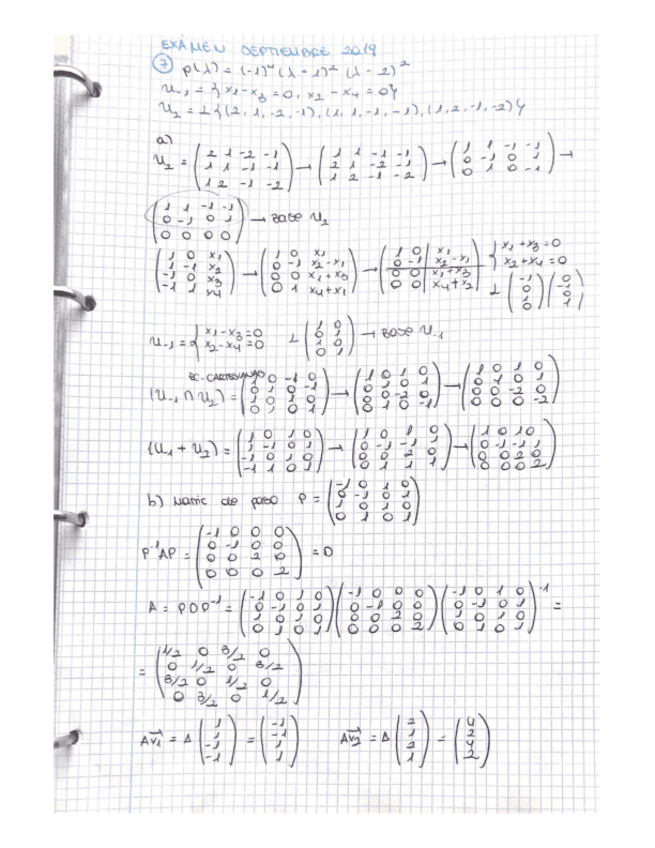 EXAMEN SEPTIEMBRE 2019
7 P(λ) = (-1)⁴ (λ+1)² (λ-2)²
U₋₁ = { x₁-x₃=0, x₂-x₄=0 }
U₂ = L{(2, 1, -2, -1), (1, 1, -1, -1), (1, 2, -1, -2)}
a)
U₂ = (2 1 -2 -1 / 1 1 -1 -1 / 1 2 -1 -2) → (1 1 -1 -1 / 2 1 -2 -1 / 1 2 -1 -2) → (1 1 -1 -1 / 0 -1 0 1 / 0 1 0 -1) →
(1 1 -1 -1 / 0 -1 0 1 / 0 0 0 0) → Base U₂
(1 0 x₁ / 1 -1 x₂ / -1 0 x₃ / -1 1 x₄) → (1 0 x₁ / 0 -1 x₂-x₁ / 0 0 x₁+x₃ / 0 1 x₄+x₁) → (1 0 x₁ / 0 -1 x₂-x₁ / 0 0 x₁+x₃ / 0 0 x₄+x₂) { x₁+x₃=0 / x₂+x₄=0
L (-1 / 0 / 1 / 0) (0 / -1 / 0 / 1)
U₋₁ = { x₁-x₃=0 / x₂-x₄=0 L (1 0 / 0 1 / 1 0 / 0 1) → Base U₋₁
EC. CARTESIANAS
(U₋₁ ∩ U₂) = (1 0 -1 0 / 0 1 0 -1 / 1 0 1 0 / 0 1 0 1) → (1 0 1 0 / 0 1 0 1 / 0 0 -2 0 / 0 1 0 -1) → (1 0 1 0 / 0 1 0 1 / 0 0 -2 0 / 0 0 0 -2)
(U₁ + U₂) = (1 0 1 0 / 1 -1 0 1 / -1 0 1 0 / -1 1 0 1) → (1 0 1 0 / 0 -1 -1 1 / 0 0 2 0 / 0 1 1 1) → (1 0 1 0 / 0 -1 -1 1 / 0 0 2 0 / 0 0 0 2)
b) Matriz de paso P = (-1 0 1 0 / 0 -1 0 1 / 1 0 1 0 / 0 1 0 1)
P⁻¹AP = (-1 0 0 0 / 0 -1 0 0 / 0 0 2 0 / 0 0 0 2) = D
A = PDP⁻¹ = (-1 0 1 0 / 0 -1 0 1 / 1 0 1 0 / 0 1 0 1) (-1 0 0 0 / 0 -1 0 0 / 0 0 2 0 / 0 0 0 2) (-1 0 1 0 / 0 -1 0 1 / 1 0 1 0 / 0 1 0 1)⁻¹ =
= (1/2 0 3/2 0 / 0 1/2 0 3/2 / 3/2 0 1/2 0 / 0 3/2 0 1/2)
Av₁ = A (1 / 1 / -1 / -1) = (-1 / -1 / 1 / 1) Av₂ = A (2 / 1 / 2 / 1) = (4 / 2 / 4 / 2)